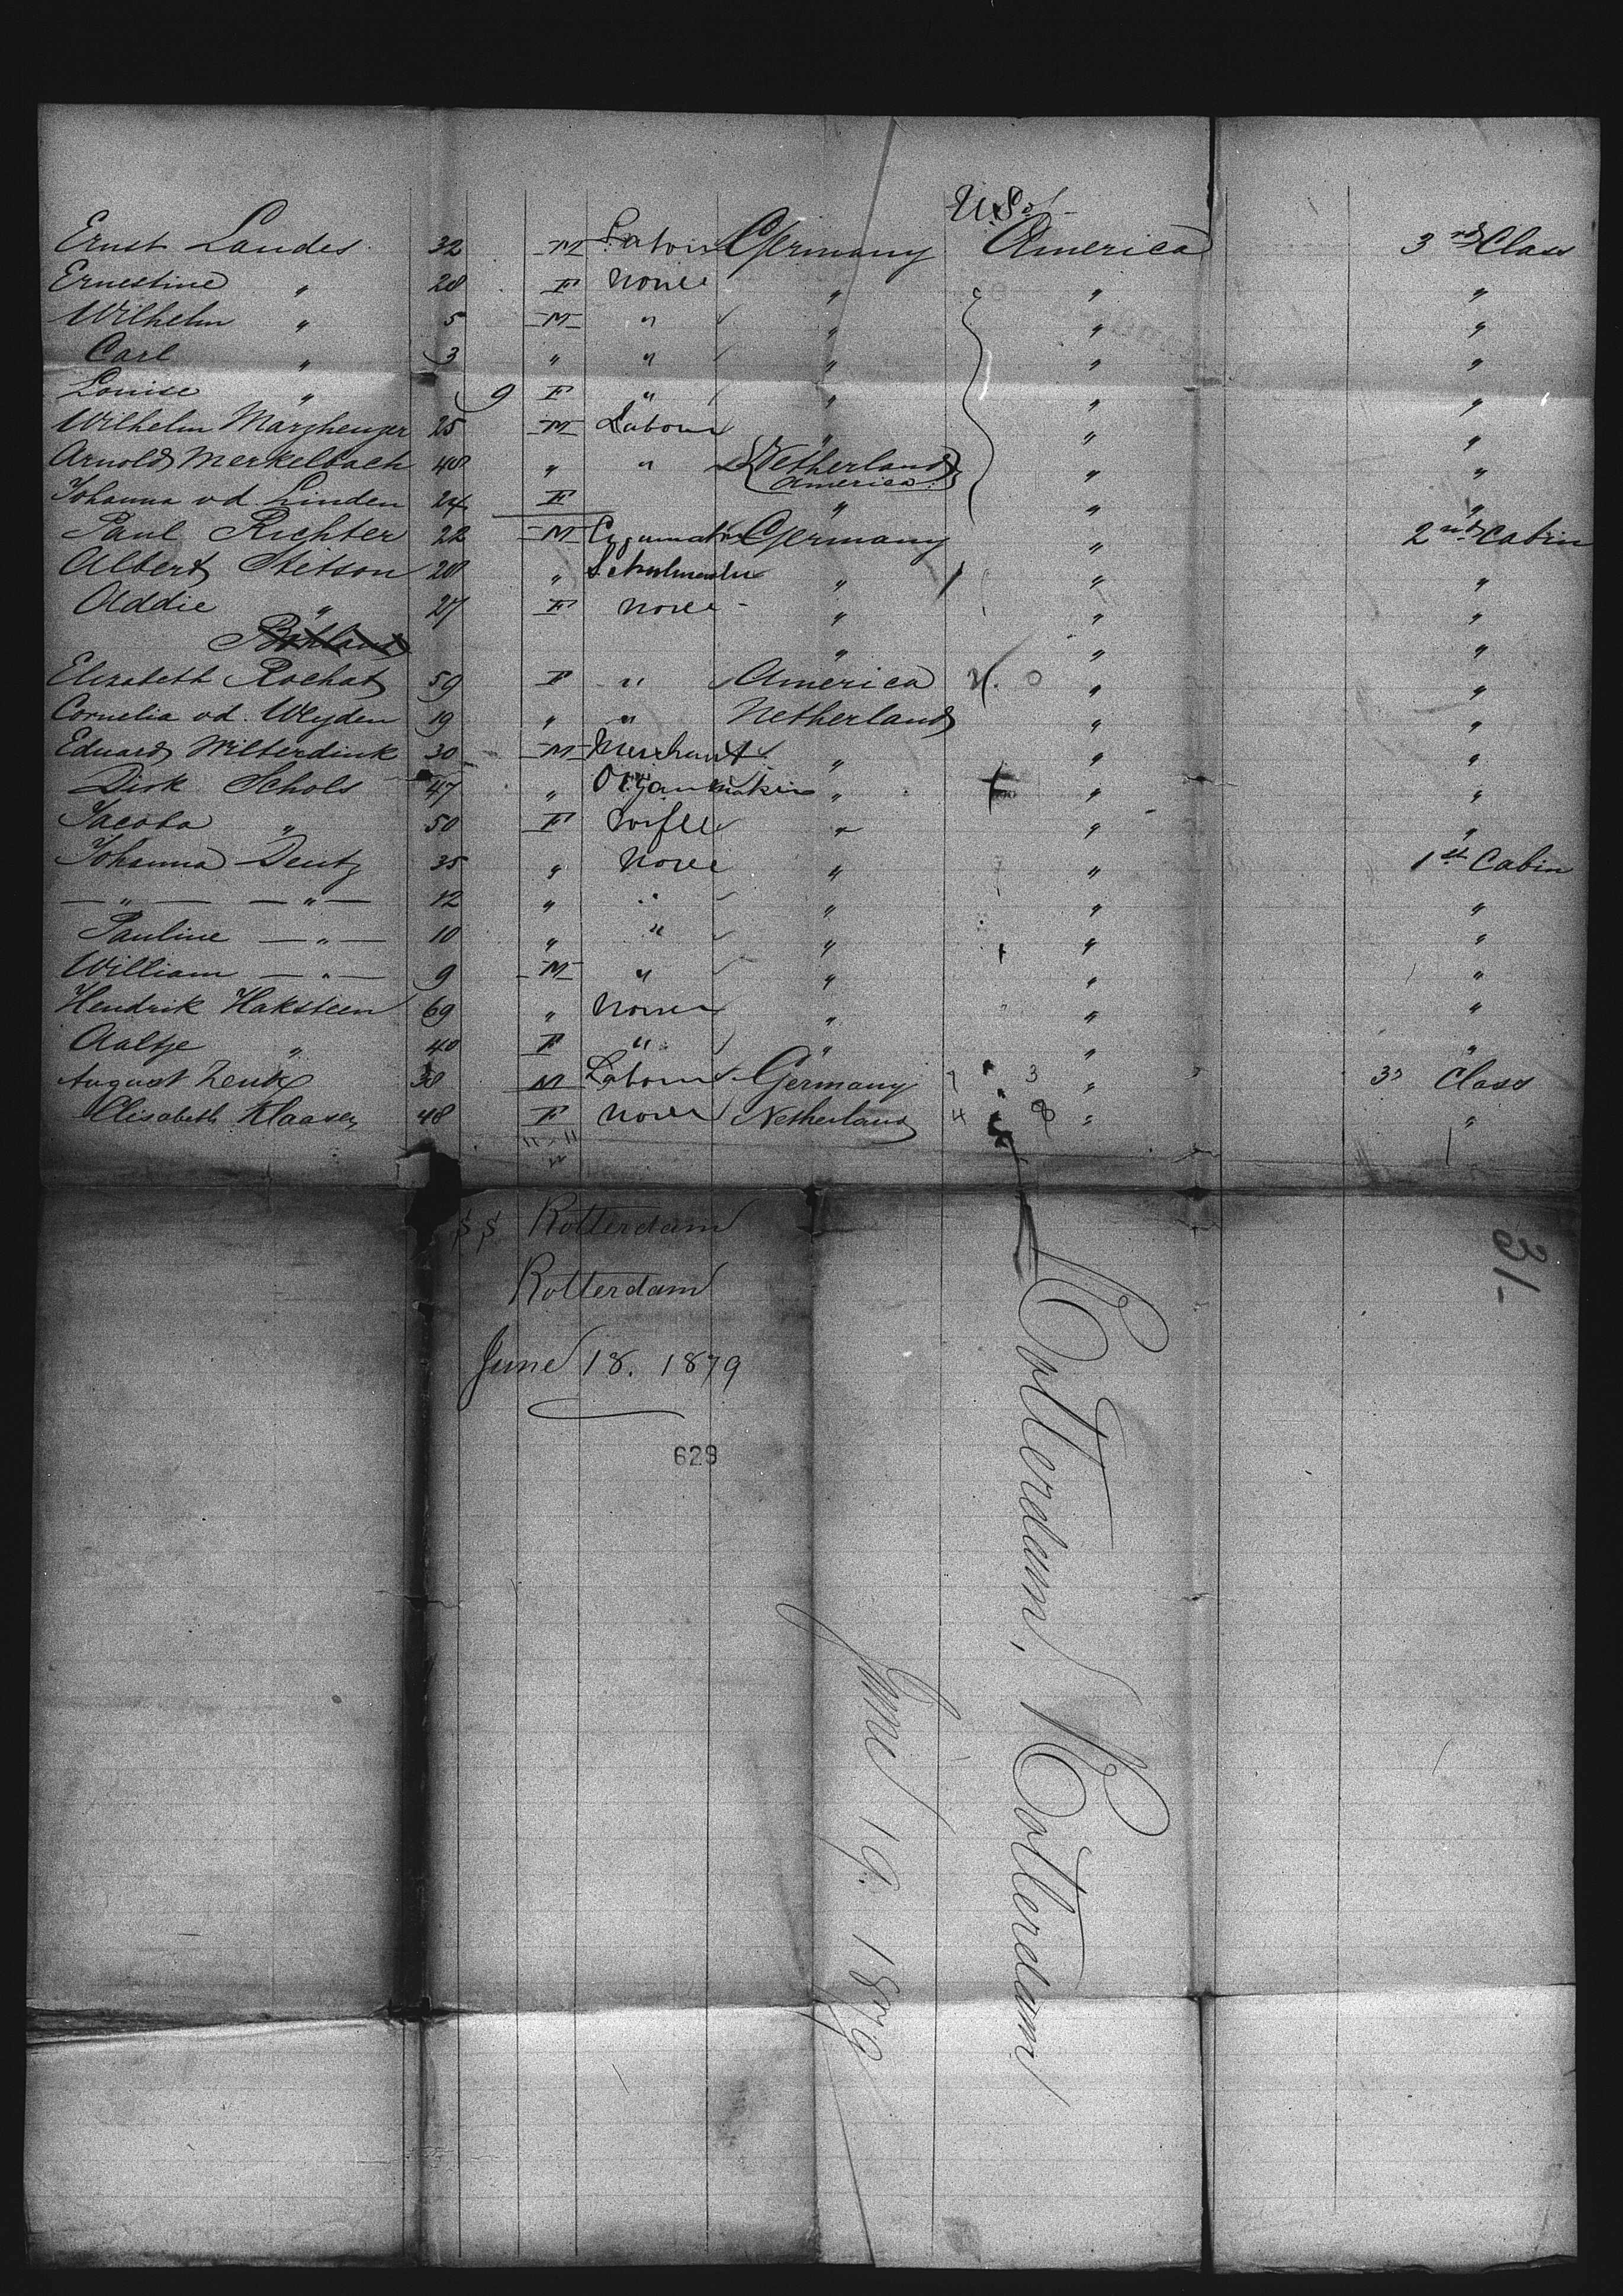 U.S. of
Ernst Landes 32 M Labour Germany America 3rd Class
Ernestine " 28 F None " " "
Wilhelm " 5 M " " " "
Carl " 3 " " " " "
Louise " 9 F " " " "
Wilhelm 25 M Labour " " "
Arnold Merkelbach 48 " " Netherland America " "
Johanna v d. Linden 24 F " " "
Paul Richter 22 M Germany " 2nd Cabin
Albert Stetson 28 " " " "
Addie " 27 F None " " "
" " "
Elisabeth Rochat 59 F " America " "
Cornelia v d. Weyden 19 " " Netherland " "
Eduard Wilterdink 30 M Merchant " " "
Dirk Schols 47 " Organmaker " " "
Jacoba " 50 F Wife " " "
Johanna Dentz 35 " None " " 1st Cabin
— " — — " — 12 " " " " "
Pauline — " — 10 " " " " "
William — " — 9 M " " " "
Hendrik Haksteen 69 " None " " "
Aaltje " 40 F " " " "
August Zenk 38 M Labour Germany 7 3 " 3d Class
Elisabeth Klaasen 48 F None Netherland 4 8 " "
SS Rotterdam
Rotterdam
June 18. 1879
629
Rotterdam, Rotterdam
June 19. 1879